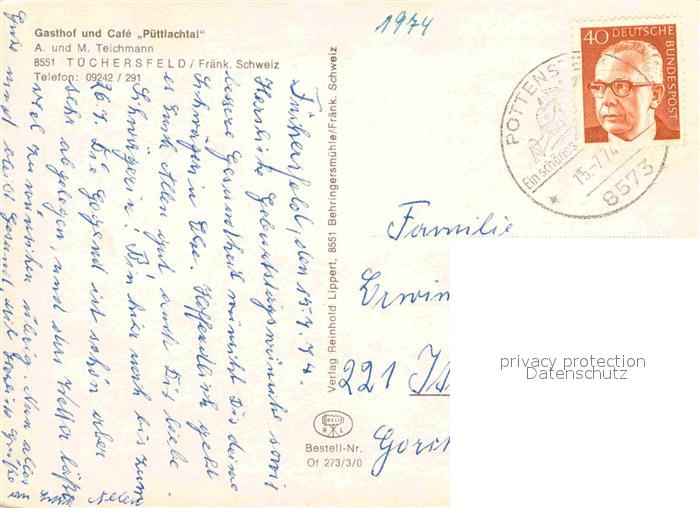 Gasthof und Café „Püttlachtal"
A. und M. Teichmann
8551 TÜCHERSFELD / Fränk. Schweiz
Telefon: 09242 / 291
1974
40 DEUTSCHE
BUNDESPOST
POTTENST
Ein schönes
15.7.74
8573
Tüchersfeld, den 15.7.74.
Herzliche Geburtstagswünsche sowie
bessere Gesundheit wünscht Dir deine
Schwägerin Else. Hoffendlich geht
es Euch Allen gut auch Dir liebe
Schwägerin! Bin hier noch bis zum
26.7. Die Gegend ist schön aber
sehr abgelegen, und das Wetter läßt
viel zu wünschen übrig. Nun alles
Gute und bleibt Gesund, mit Grüße
an Euch Allen
Verlag Reinhold Lippert, 8551 Behringersmühle/Fränk. Schweiz
RELI
R L
Bestell-Nr.
Of 273/3/0
Familie
Erwin
221
privacy protection
Datenschutz